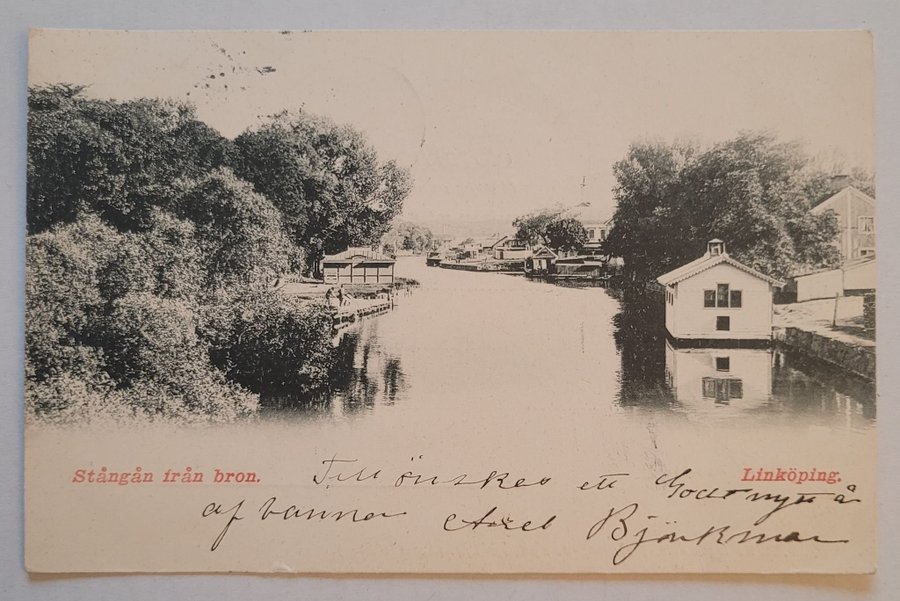 Stångån från bron.
Linköping.
Till önskes ett Godt nytt å
af vännen Axel Björkman